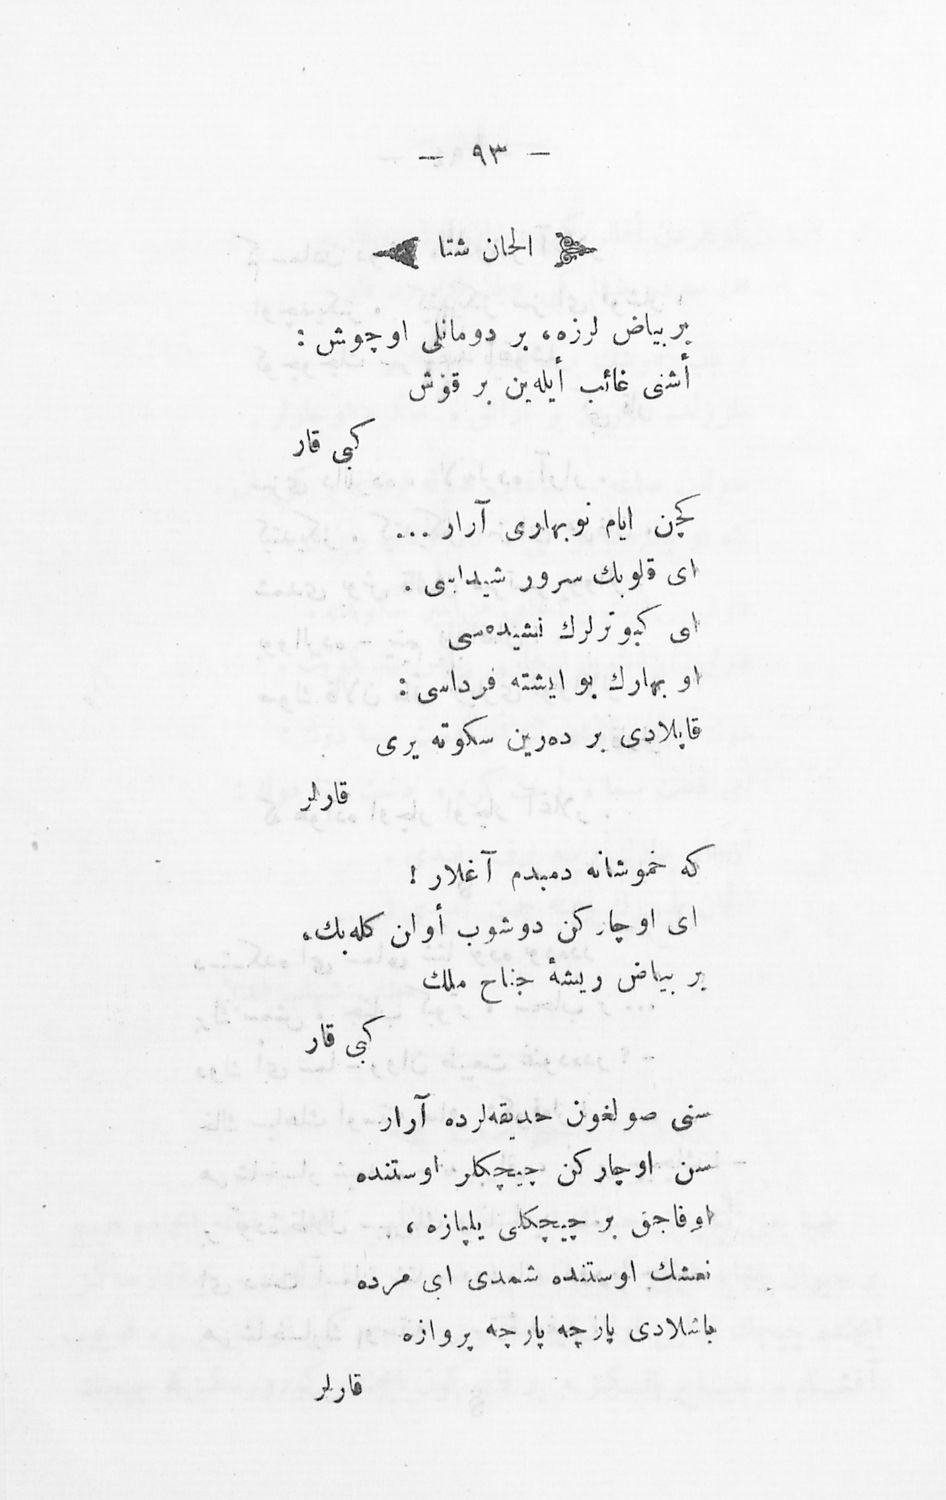 — ٩٣ —
الحان شتا
بر بياض لرزه، بر دومانلى اوچوش :
أشنى غائب أيله‌ين بر قوش
كبى قار
كچن ايام نوبهارى آرار ...
اى قلوبك سرور شيداسى .
اى كبوترلرك نشيده‌سى
او بهارك بو ايشته فرداسى :
قاپلادى بر ده‌رين سكوته يرى
قارلر
كه خموشانه دمبدم آغلار !
اى اوچاركن دوشوب أولن كله‌بك،
بر بياض ريشهٔ جناح ملك
كبى قار
سنى صولغون حديقه‌لرده آرار
سن اوچاركن چيچكلر اوستنده
اوفاجق بر چيچكلى يلپازه ،
نعشك اوستنده شمدى اى مرده
باشلادى پارچه پارچه پروازه
قارلر